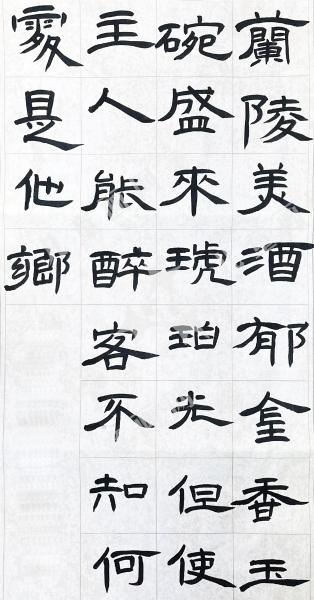 蘭陵美酒郁金香玉
碗盛來琥珀光但使
主人能醉客不知何
處是他鄉